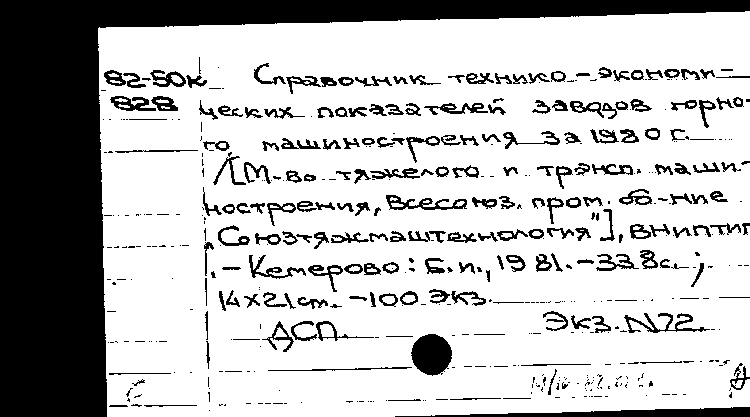 82-50к Справочник технико-экономи-
828 ческих показателей заводов горно-
го машиностроения за 1980 г.
/[М-во тяжелого и трансп. маши-
ностроения, Всесоюз. пром. об-ние
„Союзтяжмаштехнология"], ВНИПТИ
. – Кемерово: Б.и., 1981. – 338с. ;
14х21 ст. – 100 экз.
ДСП. Экз. N72.